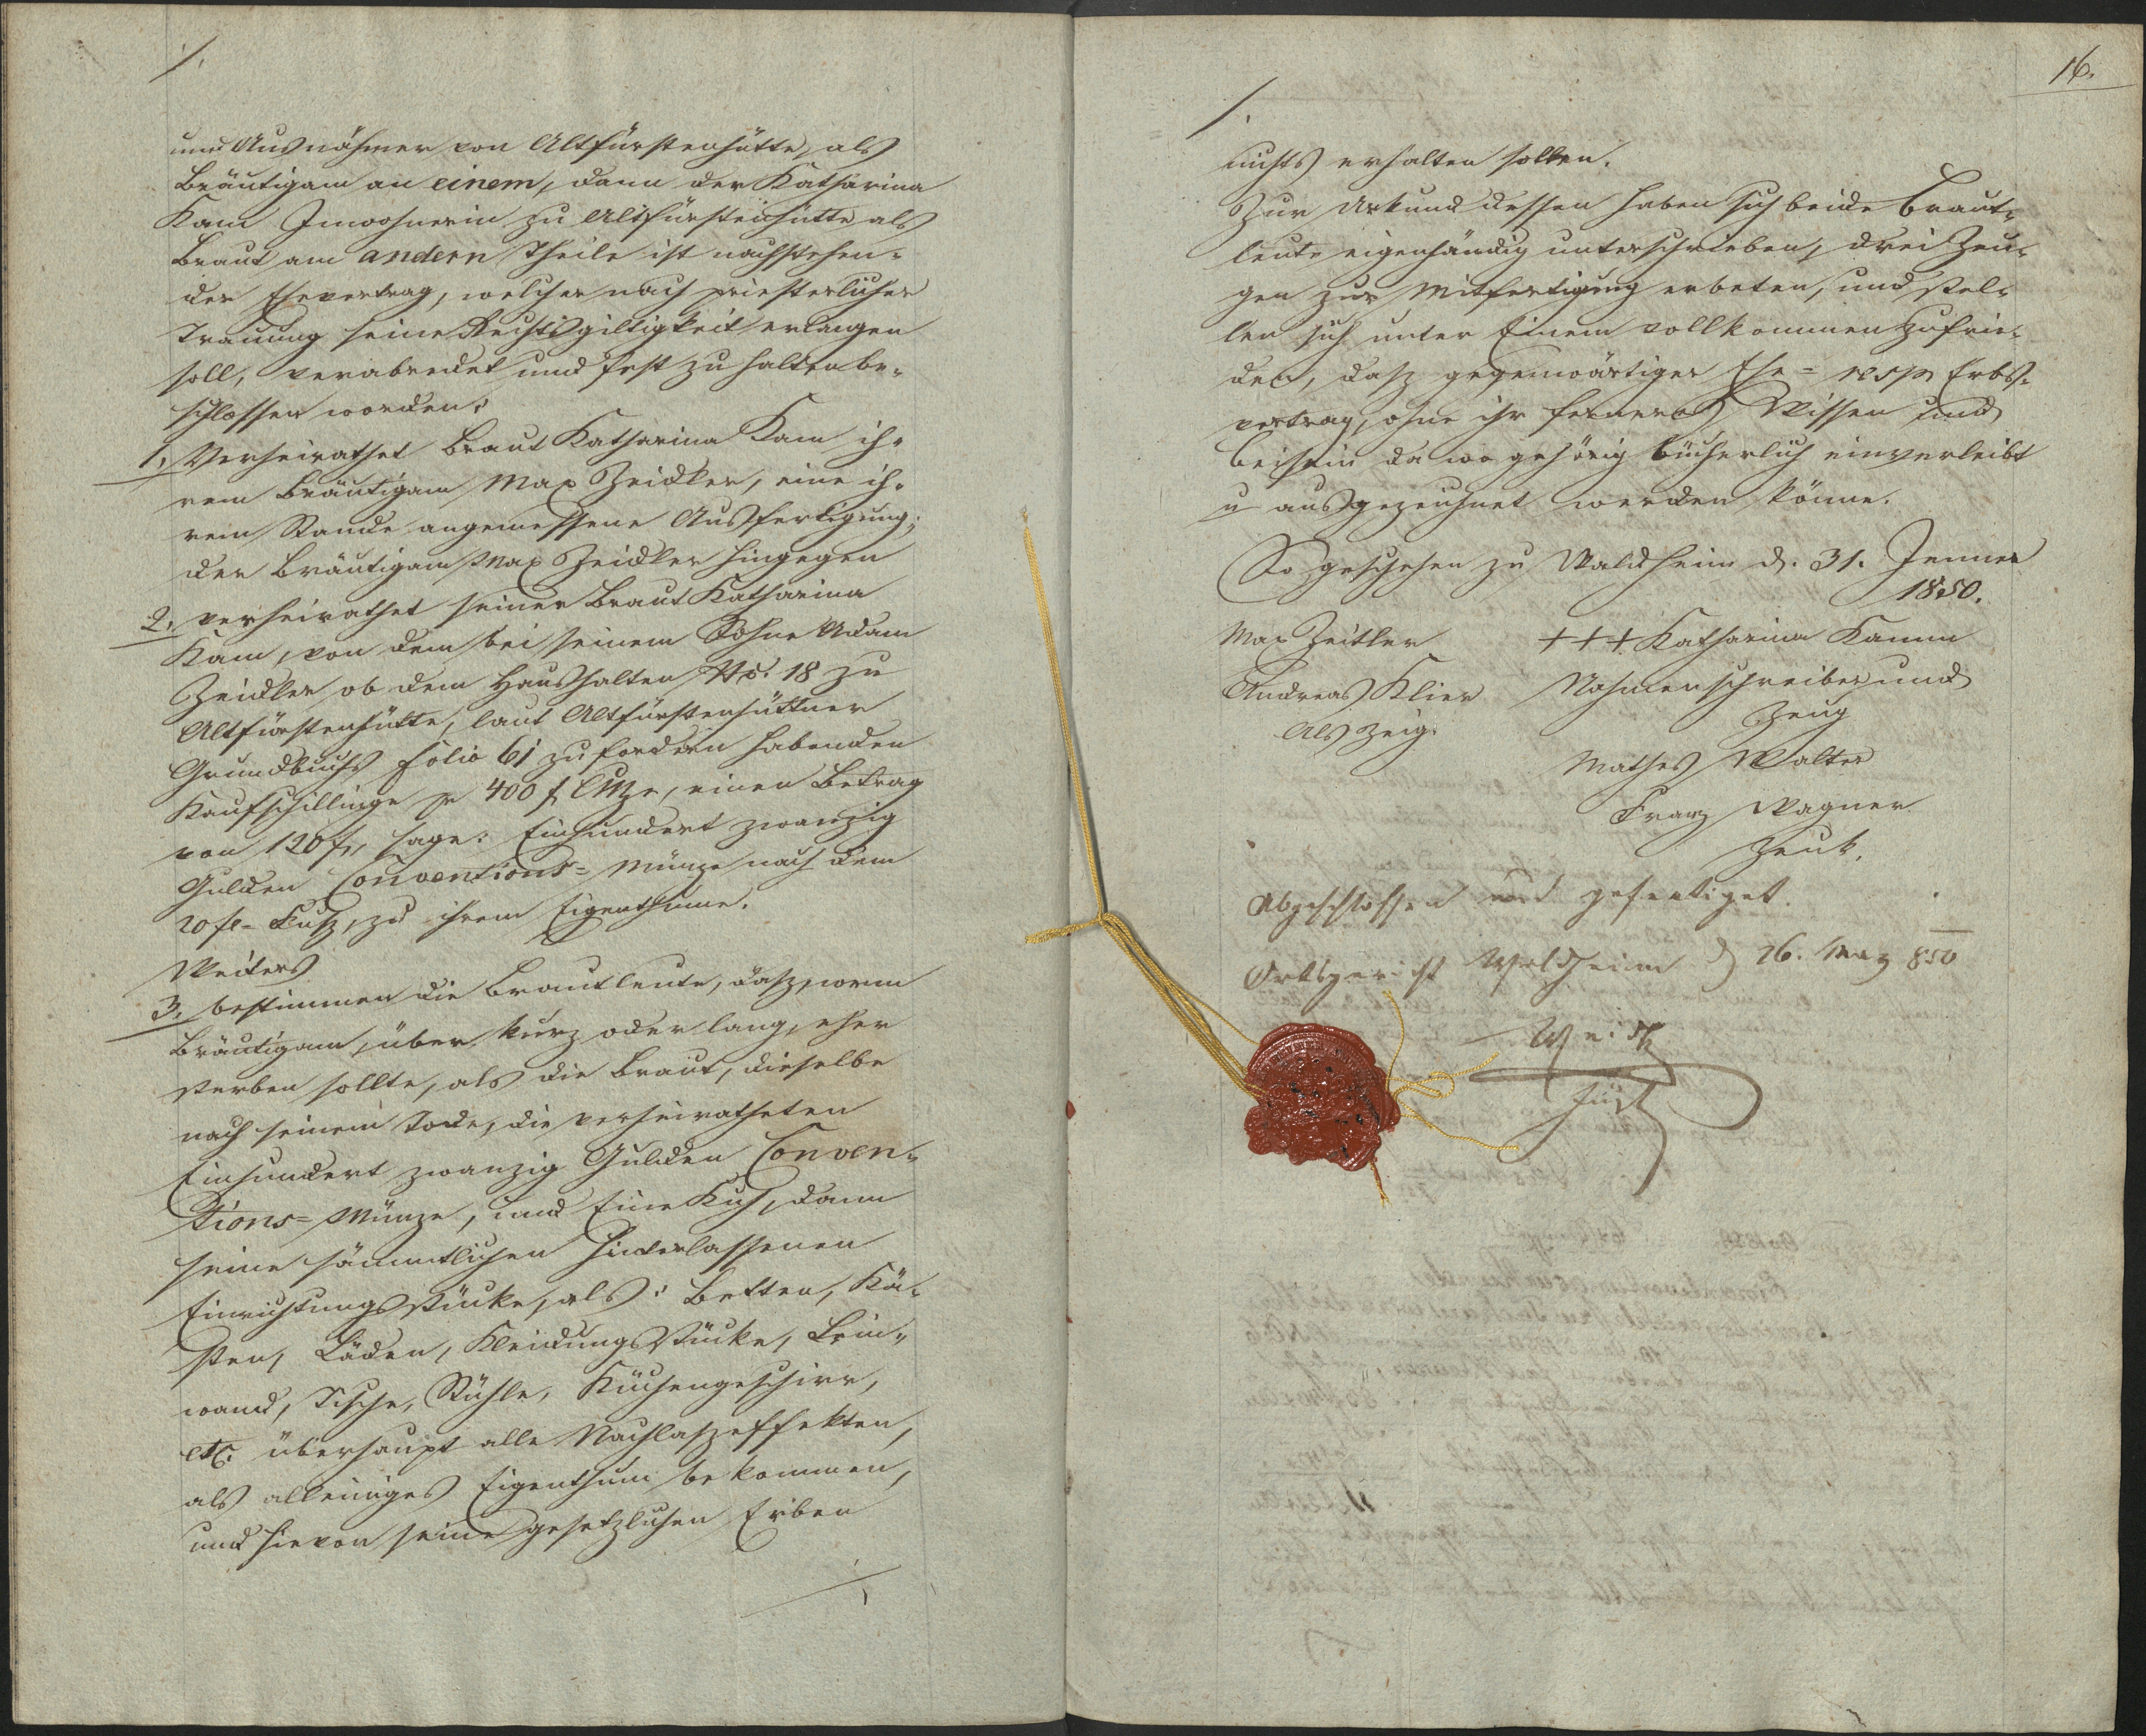 /.
und Ausnähmer von Altfürstenhütte, als
Bräutigam an einem, dann der Katharina
Kam Inwohnerin zu Altfürstenhütte als
Braut am andern Theile ist nachstehen-
der Ehevertrag, welcher nach priesterlicher
Trauung seine Rechtsgiltigkeit erlangen
soll, verabredet und fest zu halten be-
schlossen worden:
1, Verheirathet Braut Katharina Kam ih-
rem Bräutigam Max Zeidler, eine ih-
rem Stande angemessene Ausfertigung;
der Bräutigam Max Zeidler hingegen
2, verheirathet seiner Braut Katharina
Kam, von dem bei seinem Sohne Adam
Zeidler ob dem Haushalten No: 18 zu
Altfürstenhütte, laut Altfürstenhüttner
Grundbuchs folio 61 zu fordern habenden
Kaufschillinge pr 400 f CMze, einen Betrag
von 120 f, sage: Einhundert zwanzig
Gulden Conventions= Münze nach dem
20 fl= Fuß, zu ihrem Eigenthume.
Weiters
3, bestimmen die Brautleute, daß, wenn
Bräutigam, über kurz oder lang, eher
sterben sollte, als die Braut, dieselbe
nach seinem Tode, die verheiratheten
Einhundert zwanzig Gulden Conven-
tions= Münze, und Eine Kuh, dann
seine sämmtlichen hinterlassenen
Einrichtungsstücke, als: Betten, Kä-
sten, Läden, Kleidungsstücke, Lein-
wand, Tische, Stühle, Küchengeschirr,
etc. überhaupt alle Nachlaßeffekten,
als alleiniges Eigenthum bekommen,
und hievon seine gesetzlichen Erben
/.
16.
/.
nichts erhalten sollen.
Zur Urkund dessen haben sich beide Braut-
leute eigenhändig unterschrieben, drei Zeu-
gen zur Mitfertigung erbeten, und stel-
len sich unter Einem vollkommen zufrie-
den, daß gegenwärtiger Ehe= resp Erbs-
vertrag, ohne ihr ferneres Wissen und
Beisein da wo gehörig bücherlich einverleibt
u ausgezeichnet werden könne.
So geschehen zu Waldheim d. 31. Jenner
1850.
Max Zeitler +++ Katharina Kamm
Andreas Klier Nahmenschreiber und
als Zeig. Zeug
Mathes Walter
Franz Wagner
Zeuk.
Abgeschlossen und gefertiget.
Ortsgericht Waldheim d 26. März 850